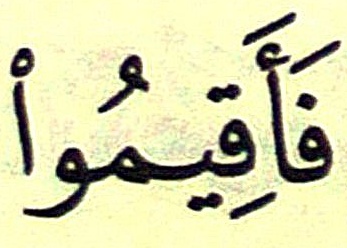 فَأَقِيمُوا۟